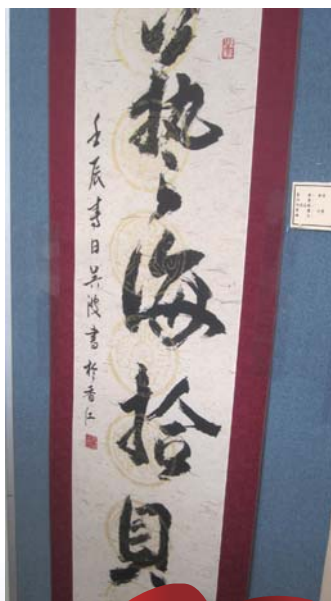 藝海拾貝
壬辰春日吴波書於香江